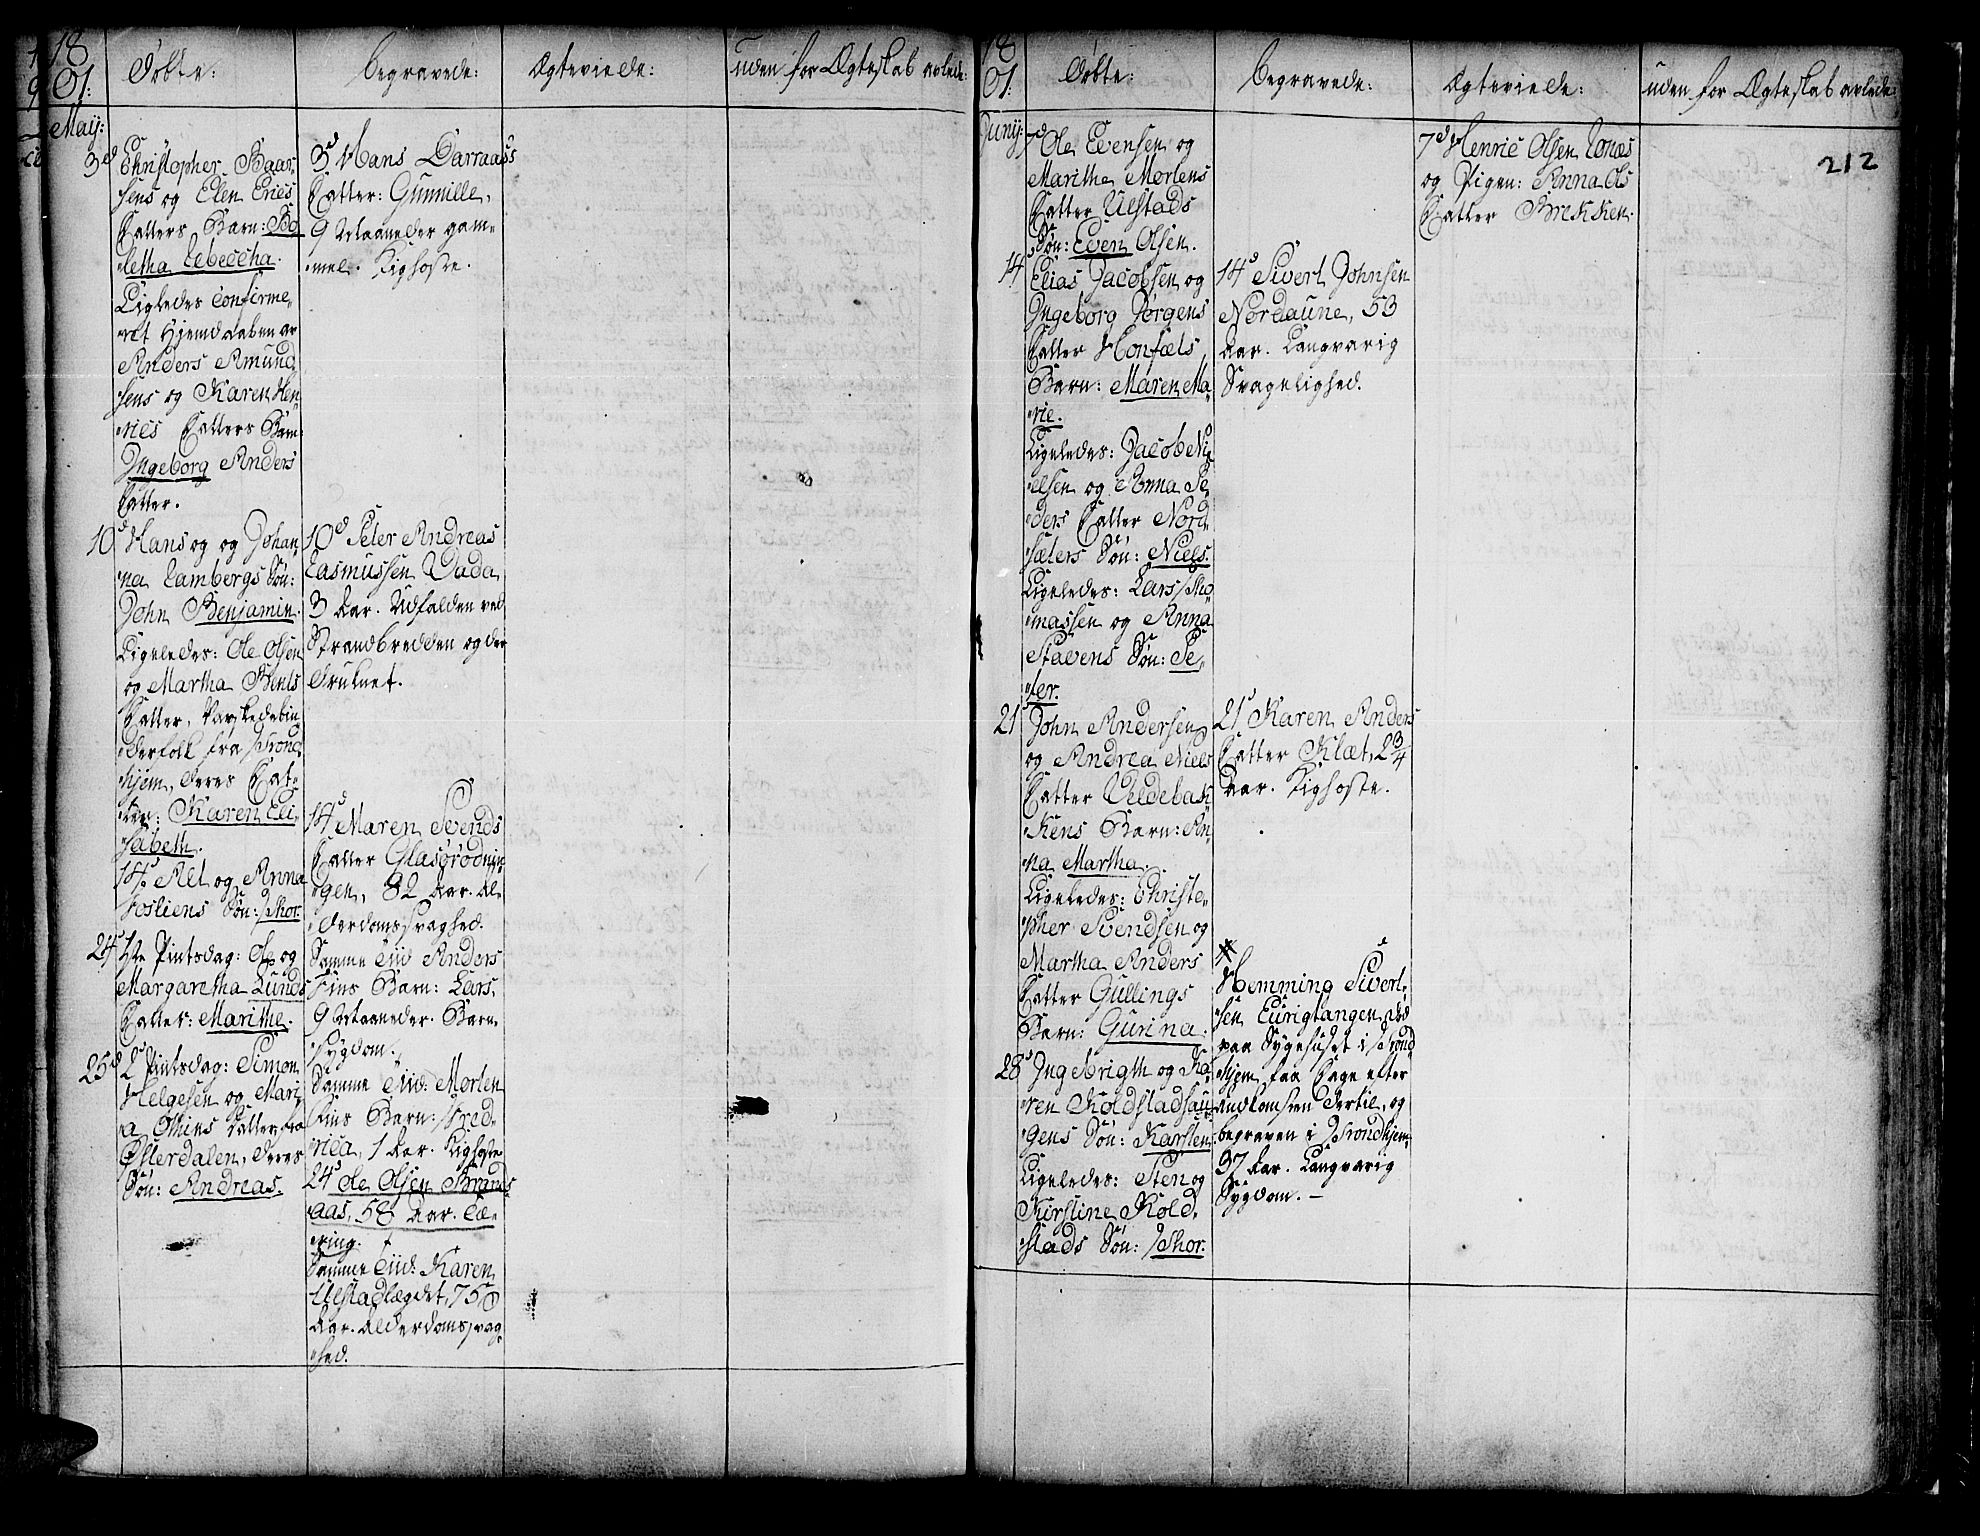 1801.
Døbte:
Begravede:
Ægteviede:
uden for Ægteskab avlede:
May:
3d Christopher Baar-
sens og Elen Erics
Datters Barn: Bo-
letha Rebeccha.
Ligledes confirme-
ret Hjemdaaben av
Anders Amund-
sens og Karen Hen-
rics Datters Barn
Ingeborg Anders
Datter.
10d Hans og og Johan-
na Lambergs Søn:
John Benjamin.
Ligeledes: Ole Olsen
og Martha Bents
Datter,
derfolk fra Trond-
hjem, deres Dat-
ter: Karen Eli-
sabeth.
14d. Alt og Anna
Fosliens Søn: Thor.
24d 1ste Pintsdag: Ole og
Margaretha Lunds
Datter: Marithe.
25d 2d Pintsdag: Simon
Helgesen og Mari-
a Othins Datter fra
Østerdalen, deres
Søn: Andreas.
3d Hans Darraas's
Datter: Gunnille,
9 Maaneder gam-
mel. Kighoste.
10d Peter Andreas
Rasmussen Vada,
3 Aar. Udfalden ved
Strandbredden og der
druknet.
14d Maren Svends
Datter Gladsrødnin-
gen, 82 Aar. Al-
derdomssvaghed.
Samme Tiid Anders
Fins Barn: Lars,
9 Maaneder. Barn-
sygdom.
Samme Tiid: Morten
Fins Barn: Fred-
rica, 1 Aar. Kighoste
24d Ole Olsen Brands-
aas, 58 Aar. Tæ-
ring. +
Samme Tiid: Karen
Ulstadlægdet, 75
Aar. Alderdomssvag-
hed.
1801.
Døbte:
Begravede:
Ægteviede:
uden for Ægteskab avlede:
212
Juny:
7d Ole Evensen og
Marithe Mortens
Datter Ulstads
Søn: Even Olsen.
14 Elias Jacobsen og
Ingeborg Jørgens
Datter Honfæls
Barn: Maren Ma-
rie.
Ligeledes: Jacob Ni-
elsen og Anna Pe-
ders Datter Nord-
sæters Søn: Niels.
Ligeledes: Lars Tho-
massen og Anna
Stavens Søn: Pe-
ter.
21 John Andersen
og Andrea Niels
Datter Veldebak-
kens Barn: An-
na Martha.
Ligeledes: Christo-
pher Svendsen og
Martha Anders
Datter Gullings
Barn: Gurina.
28d Ing Brigth og Ka-
ren Koldstadhau-
gens Søn: Karsten.
Ligeledes: Sten og
Kirstine Kold-
stads Søn: Thor.
14d Sivert Johnsen
Nordaune, 53
Aar. Langvarig
Svagelighed.
21d Karen Anders
Datter Klæt, 2 3/4
Aar. Kighoste.
Hemming Sivert-
sen død
paa Sygehuset i Trond-
hjem faa Dage efter
Ankomsten dertil, og
begraven i Trondhjem
37 Aar. Langvarig
Sygdom. –
7d Henric Olsen Lonæs
og Pigen: Anna Ols
Datter Brekken.